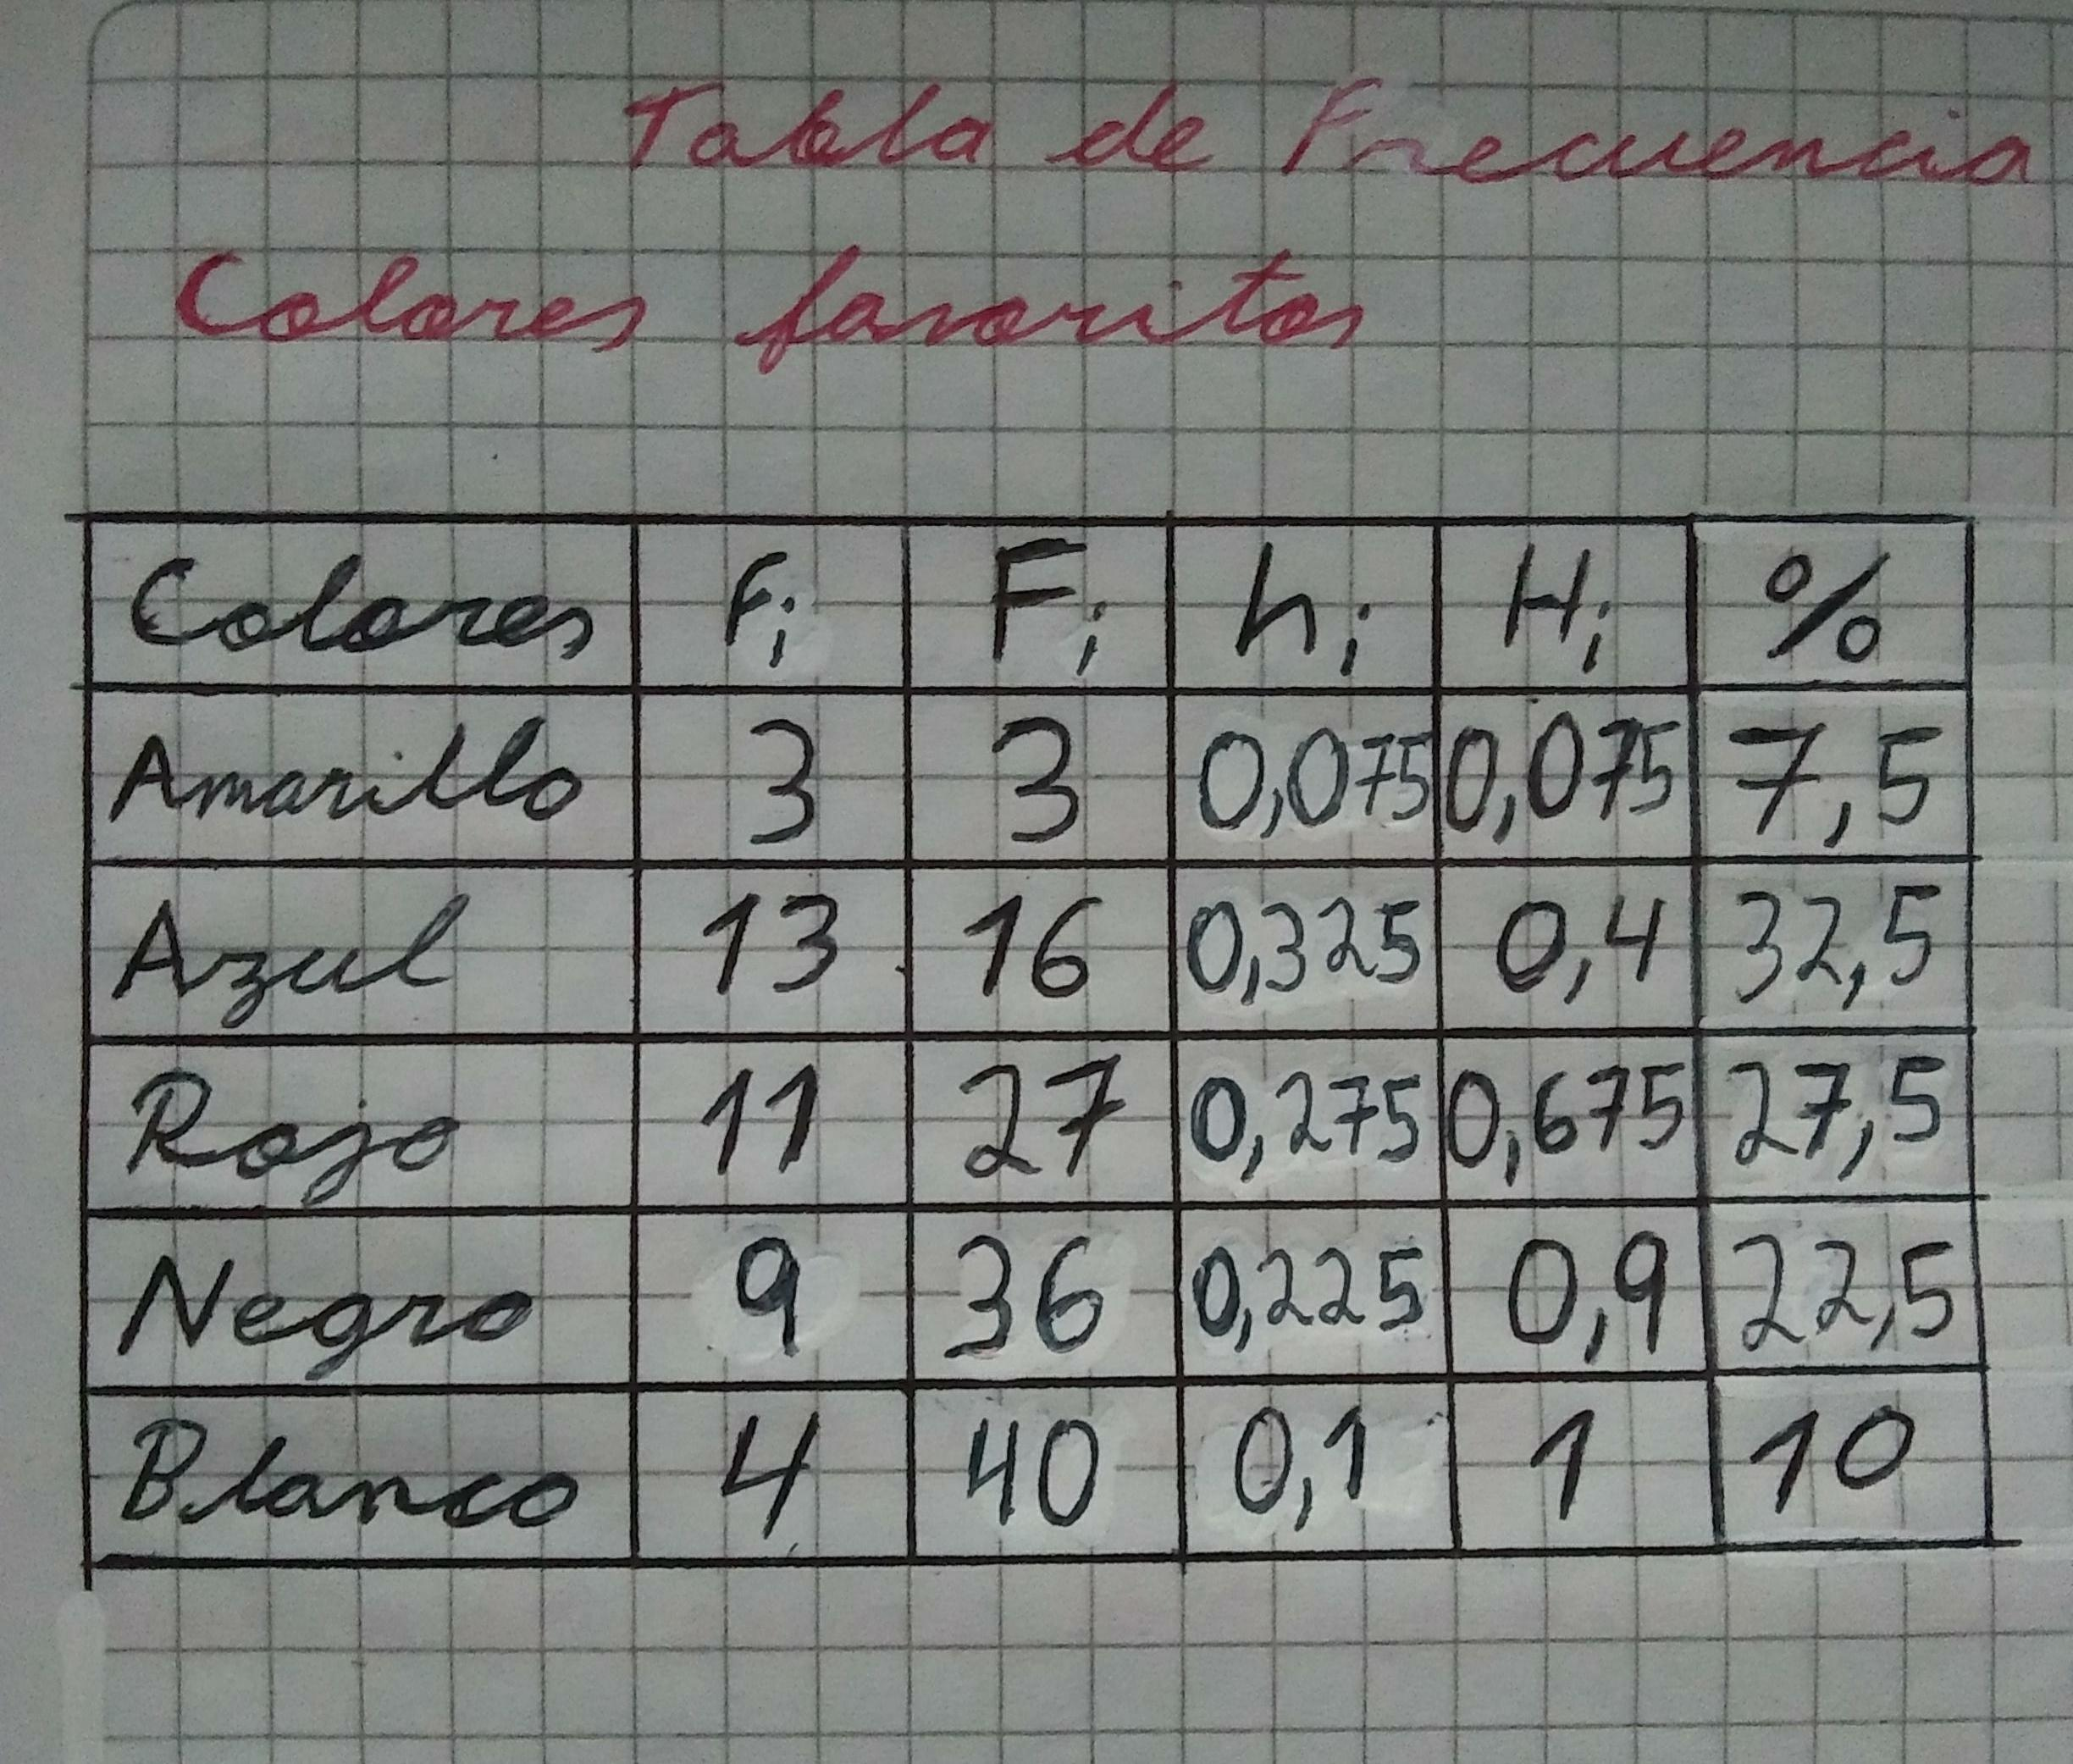 Tabla de Frecuencia
Colores favoritos
Colores fi Fi hi Hi %
Amarillo 3 3 0,075 0,075 7,5
Azul 13 16 0,325 0,4 32,5
Rojo 11 27 0,275 0,675 27,5
Negro 9 36 0,225 0,9 22,5
Blanco 4 40 0,1 1 10